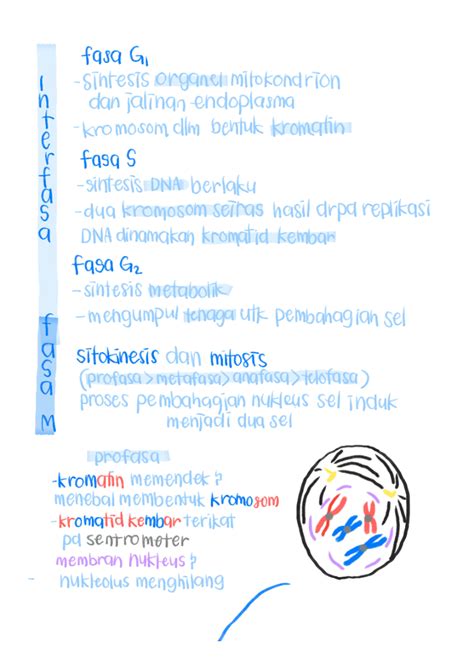 Interfasa
fasa G1
-sintesis organel mitokondrion
dan jalinan endoplasma
-kromosom dlm bentuk kromatin
fasa S
-sintesis DNA berlaku
-dua kromosom seiras hasil drpd replikasi
DNA dinamakan kromatid kembar
fasa G2
-sintesis metabolik
-mengumpul tenaga utk pembahagian sel
fasa M
sitokinesis dan mitosis
(profasa>metafasa>anafasa>telofasa)
proses pembahagian nukleus sel induk
menjadi dua sel
profasa
-kromatin memendek &
menebal membentuk kromosom
-kromatid kembar terikat
pd sentrometer
membran nukleus &
- nukleolus menghilang